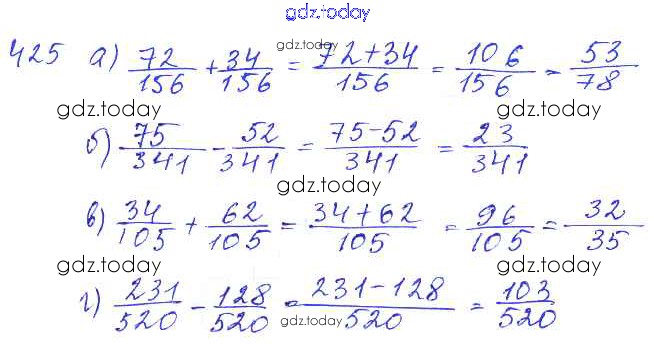 gdz.today
425 а) 72/156 + 34/156 = 72+34/156 = 106/156 = 53/78
gdz.today
gdz.today gdz.today
б) 75/341 - 52/341 = 75-52/341 = 23/341
gdz.today
в) 34/105 + 62/105 = 34+62/105 = 96/105 = 32/35
gdz.today gdz.today
г) 231/520 - 128/520 = 231-128/520 = 103/520
gdz.today